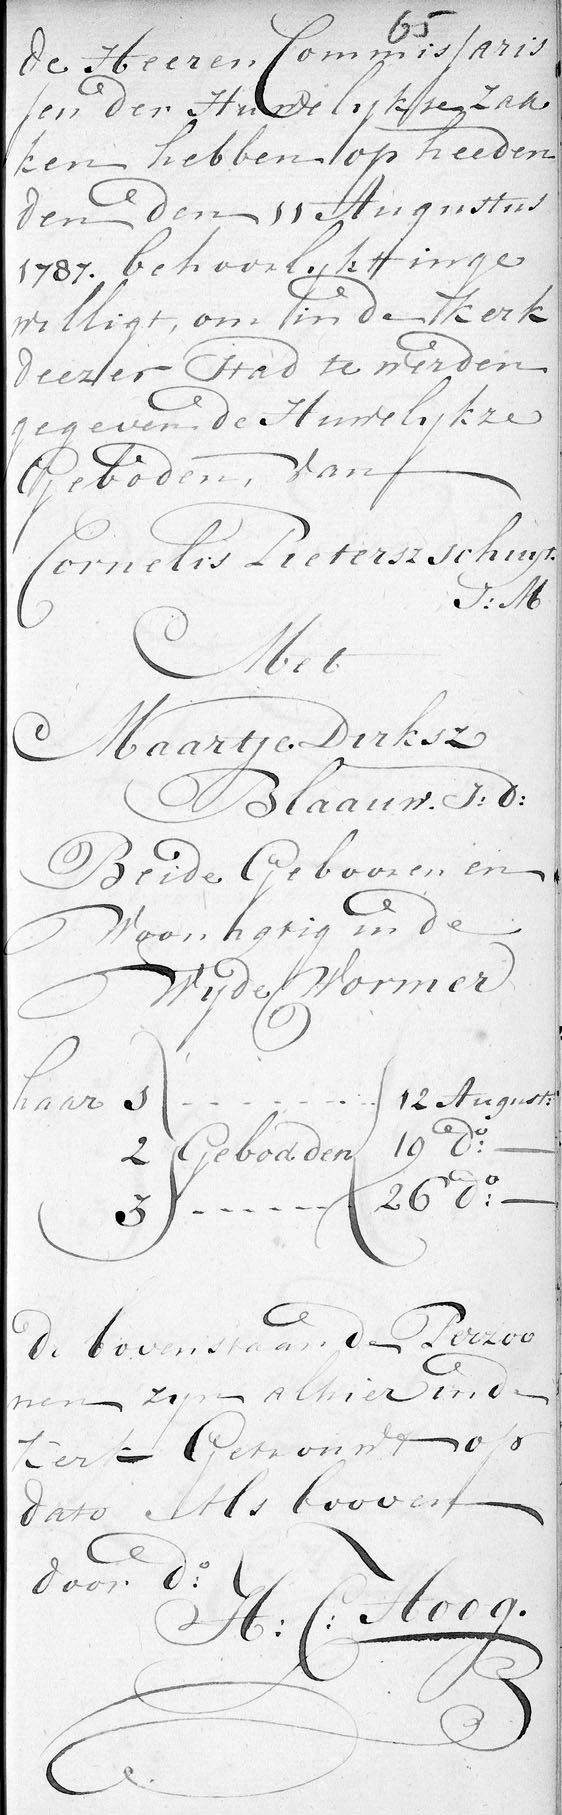 65
de Heeren Commissaris
sen der Huwelykse Zaa
ken hebben op heeden
den den 11 Augustus
1787. behoorlykt inge
willigt, om in de Kerk
deezer Stad te werden
gegeven de Huwelykze
Geboden, van
Cornelis Pietersz Schuyt.
J: M
Met
Maartje Dirksz
Blaauw. J: D:
Beide Gebooren en
Woonagtig in de
Wyde Wormer
haar 1 - - - - - - - - 12 August:
2 Gebodden 19 do: —
3 - - - - - - 26 do: —
de bovenstaande Perzoo
nen zyn alhier in de
Kerk Getrouwt op
dato Als booven
door do:
H: C: Hoog.